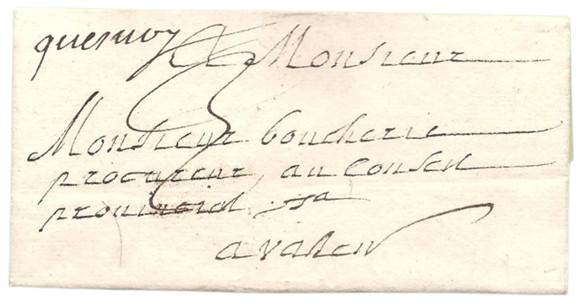 quesnoy A Monsieur
3
Monsieur boucherie
procureur, au Conseil
prouincial
a valen